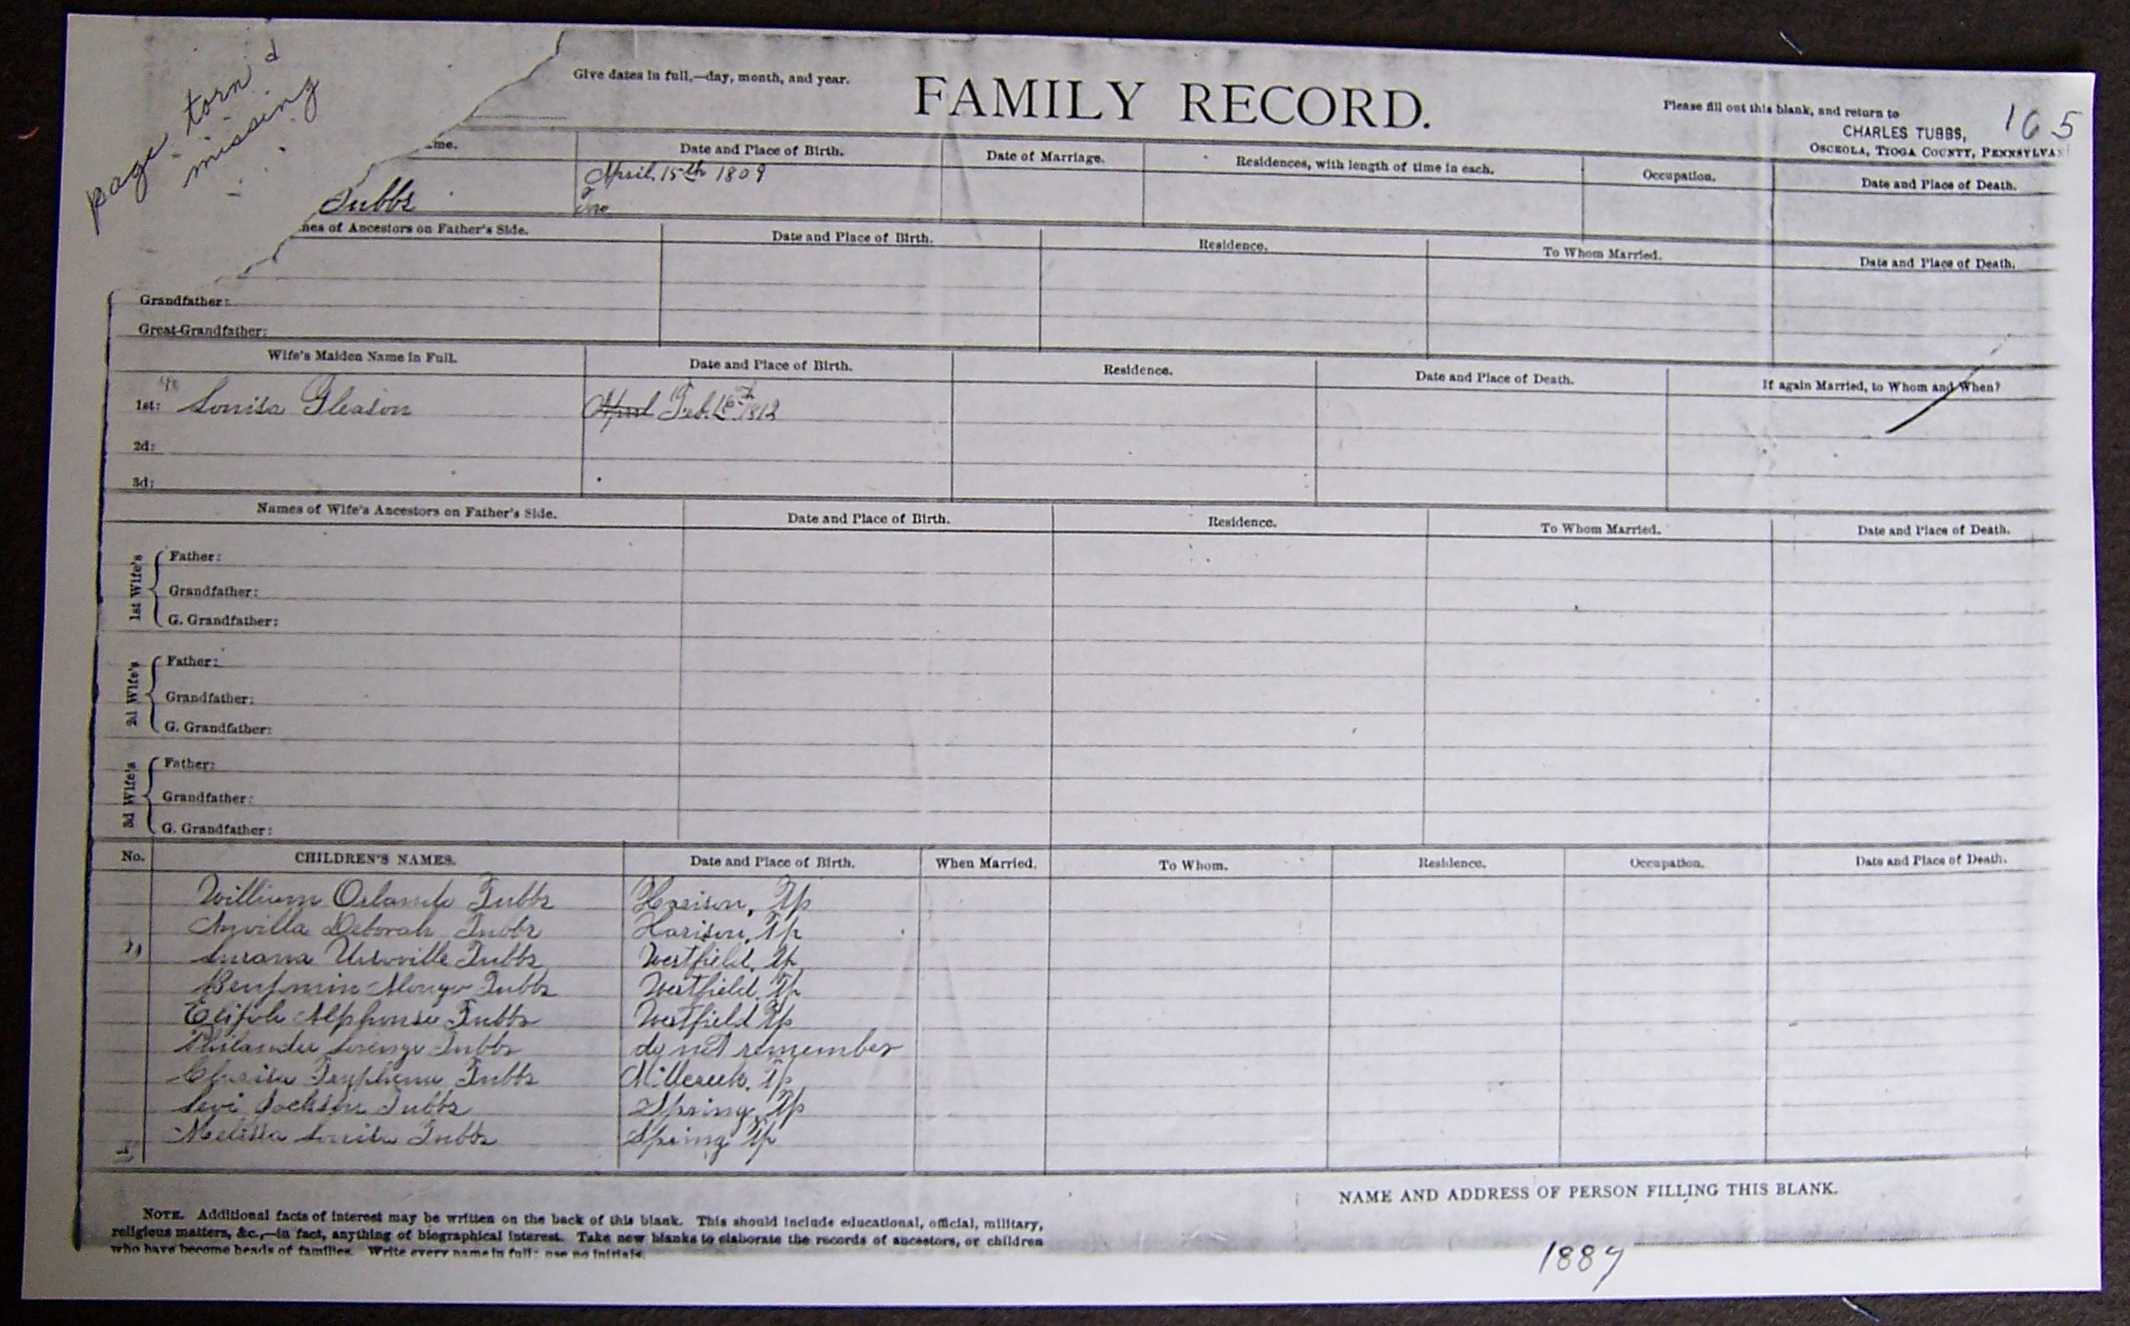 page torn d
missing
Give dates in full,—day, month, and year.
FAMILY RECORD.
Please fill out this blank, and return to
CHARLES TUBBS,
OSCEOLA, TIOGA COUNTY, PENNSYLVA
165
me. Date and Place of Birth. Date of Marriage. Residences, with length of time in each. Occupation. Date and Place of Death.
Tubbs April 15th 1809
nes of Ancestors on Father's Side. Date and Place of Birth. Residence. To Whom Married. Date and Place of Death.
Grandfather:
Great-Grandfather:
Wife's Maiden Name in Full. Date and Place of Birth. Residence. Date and Place of Death. If again Married, to Whom and When?
1st: Louisa Gleason April Feb. 16th 1812
2d:
3d:
Names of Wife's Ancestors on Father's Side. Date and Place of Birth. Residence. To Whom Married. Date and Place of Death.
1st Wife's
Father:
Grandfather:
G. Grandfather:
2d Wife's
Father:
Grandfather:
G. Grandfather:
3d Wife's
Father:
Grandfather:
G. Grandfather:
No. CHILDREN'S NAMES. Date and Place of Birth. When Married. To Whom. Residence. Occupation. Date and Place of Death.
William Orlando Tubbs Harison, Tp
Deborah Tubbs Harison, Tp
Tubbs Westfield, Tp
Benjamin Alonzo Tubbs Westfield, Tp
Alphonso Tubbs Westfield Tp
Philander Lorenzo Tubbs do not remember
Tryphena Tubbs Millcreek, Tp
Levi Jackson Tubbs Spring, Tp
Melissa Louisa Tubbs Spring Tp
NAME AND ADDRESS OF PERSON FILLING THIS BLANK.
NOTE. Additional facts of interest may be written on the back of this blank. This should include educational, official, military,
religious matters, &c.,—in fact, anything of biographical interest. Take new blanks to elaborate the records of ancestors, or children
who have become heads of families. Write every name in full: use no initials.
1887